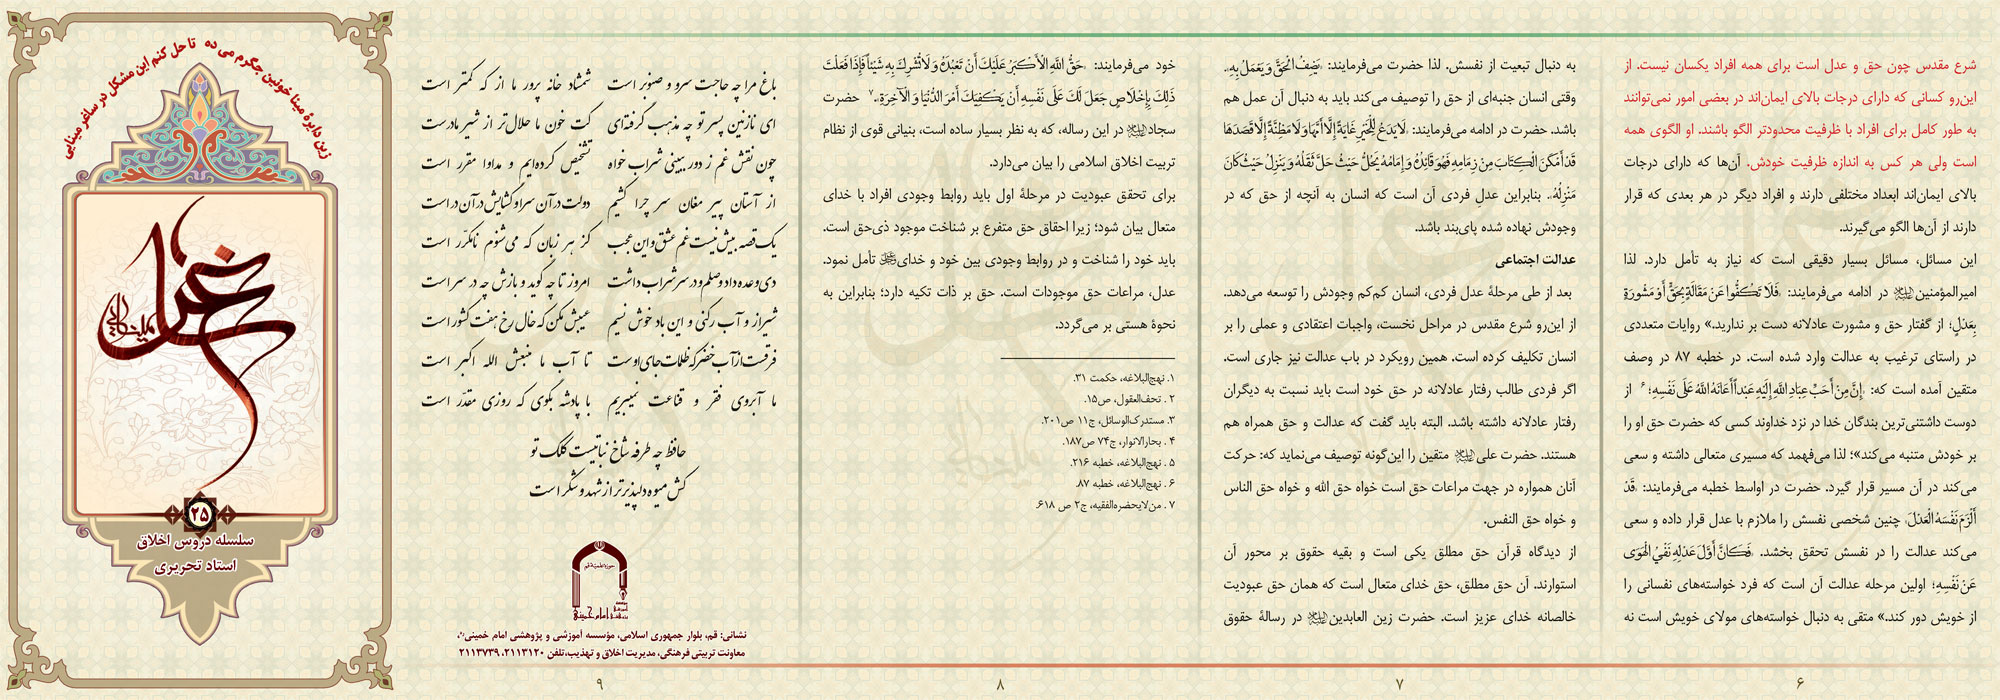 شرع مقدس چون حق و عدل است برای همه افراد یکسان نیست. از
این‌رو کسانی که دارای درجات بالای ایمان‌اند در بعضی امور نمی‌توانند
به طور کامل برای افراد با ظرفیت محدودتر الگو باشند. او الگوی همه
است ولی هر کس به اندازه ظرفیت خودش. آن‌ها که دارای درجات
بالای ایمان‌اند ابعداد مختلفی دارند و افراد دیگر در هر بعدی که قرار
دارند از آن‌ها الگو می‌گیرند.
این مسائل، مسائل بسیار دقیقی است که نیاز به تأمل دارد. لذا
امیرالمؤمنین در ادامه می‌فرمایند: «فَلَا تَكُفُّوا عَنْ مَقَالَةٍ بِحَقٍّ أَوْ مَشُورَةٍ
بِعَدْلٍ؛ از گفتار حق و مشورت عادلانه دست بر ندارید.» روایات متعددی
در راستای ترغیب به عدالت وارد شده است. در خطبه ۸۷ در وصف
متقین آمده است که: «إِنَّ مِنْ أَحَبِّ عِبَادِ اللَّهِ إِلَيْهِ عَبْداً أَعَانَهُ اللَّهُ عَلَى نَفْسِهِ؛ ۶ از
دوست داشتنی‌ترین بندگان خدا در نزد خداوند کسی که حضرت حق او را
بر خودش متنبه می‌کند»؛ لذا می‌فهمد که مسیری متعالی داشته و سعی
می‌کند در آن مسیر قرار گیرد. حضرت در اواسط خطبه می‌فرمایند: «قَدْ
أَلْزَمَ نَفْسَهُ الْعَدْلَ» چنین شخصی نفسش را ملازم با عدل قرار داده و سعی
می‌کند عدالت را در نفسش تحقق بخشد. «فَكَانَ أَوَّلَ عَدْلِهِ نَفْيُ الْهَوَى
عَنْ نَفْسِهِ؛ اولین مرحله عدالت آن است که فرد خواسته‌های نفسانی را
از خویش دور کند.» متقی به دنبال خواسته‌های مولای خویش است نه
۶
به دنبال تبعیت از نفسش. لذا حضرت می‌فرمایند: «يَصِفُ الْحَقَّ وَ يَعْمَلُ بِهِ».
وقتی انسان جنبه‌ای از حق را توصیف می‌کند باید به دنبال آن عمل هم
باشد. حضرت در ادامه می‌فرمایند: «لَا يَدَعُ لِلْخَيْرِ غَايَةً إِلَّا أَمَّهَا وَ لَا مَظِنَّةً إِلَّا قَصَدَهَا
قَدْ أَمْكَنَ الْكِتَابَ مِنْ زِمَامِهِ فَهُوَ قَائِدُهُ وَ إِمَامُهُ يَحُلُّ حَيْثُ حَلَّ ثَقَلُهُ وَ يَنْزِلُ حَيْثُ كَانَ
مَنْزِلُهُ». بنابراین عدل فردی آن است که انسان به آنچه از حق که در
وجودش نهاده شده پای‌بند باشد.
عدالت اجتماعی
بعد از طی مرحلهٔ عدل فردی، انسان کم‌کم وجودش را توسعه می‌دهد.
از این‌رو شرع مقدس در مراحل نخست، واجبات اعتقادی و عملی را بر
انسان تکلیف کرده است. همین رویکرد در باب عدالت نیز جاری است.
اگر فردی طالب رفتار عادلانه در حق خود است باید نسبت به دیگران
رفتار عادلانه داشته باشد. البته باید گفت که عدالت و حق همراه هم
هستند. حضرت علی متقین را این‌گونه توصیف می‌نماید که: حرکت
آنان همواره در جهت مراعات حق است خواه حق الله و خواه حق الناس
و خواه حق النفس.
از دیدگاه قرآن حق مطلق یکی است و بقیه حقوق بر محور آن
استوارند. آن حق مطلق، حق خدای متعال است که همان حق عبودیت
خالصانه خدای عزیز است. حضرت زین العابدین در رسالهٔ حقوق
۷
خود می‌فرمایند: «حَقُّ اللَّهِ الْأَكْبَرُ عَلَيْكَ أَنْ تَعْبُدَهُ وَ لَا تُشْرِكَ بِهِ شَيْئاً فَإِذَا فَعَلْتَ
ذَلِكَ بِإِخْلَاصٍ جَعَلَ لَكَ عَلَى نَفْسِهِ أَنْ يَكْفِيَكَ أَمْرَ الدُّنْيَا وَ الْآخِرَةِ». ۷ حضرت
سجاد در این رساله، که به نظر بسیار ساده است، بنیانی قوی از نظام
تربیت اخلاق اسلامی را بیان می‌دارد.
برای تحقق عبودیت در مرحلهٔ اول باید روابط وجودی افراد با خدای
متعال بیان شود؛ زیرا احقاق حق متفرع بر شناخت موجود ذی‌حق است.
باید خود را شناخت و در روابط وجودی بین خود و خدای تأمل نمود.
عدل، مراعات حق موجودات است. حق بر ذات تکیه دارد؛ بنابراین به
نحوهٔ هستی بر می‌گردد.
۱. نهج‌البلاغه، حکمت ۳۱.
۲ . تحف‌العقول، ص۱۵.
۳. مستدرک‌الوسائل، ج۱۱ ص۲۰۱.
۴ . بحارالانوار، ج۷۴ ص۱۸۷.
۵ . نهج‌البلاغه، خطبه ۲۱۶.
۶ . نهج‌البلاغه، خطبه ۸۷.
۷ . من‌لایحضره‌الفقیه، ج۲ ص ۶۱۸.
۸
باغ مرا چه حاجت سرو و صنوبر است شمشاد خانه پرور ما از که کمتر است
ای نازنین پسر تو چه مذهب گرفته‌ای کت خون ما حلال‌تر از شیر مادرست
چون نقش غم ز دور ببینی شراب خواه تشخیص کرده‌ایم و مداوا مقرر است
از آستان پیر مغان سر چرا کشیم دولت در آن سرا و گشایش در آن در است
یک قصه بیش نیست غم عشق و این عجب کز هر زبان که می‌شنوم نامکرّر است
دی وعده داد وصلم و در سر شراب داشت امروز تا چه گوید و بازش چه در سر است
شیراز و آب رکنی و این باد خوش نسیم عیبش مکن که خال رخ هفت کشور است
فرقست از آب خضر که ظلمات جای اوست تا آب ما که منبعش الله اکبر است
ما آبروی فقر و قناعت نمی‌بریم با پادشه بگوی که روزی مقدّر است
حافظ چه طرفه شاخ نباتیست کلک تو
کش میوه دلپذیرتر از شهد و شکر است
حوزه علمیه قم
نشانی: قم، بلوار جمهوری اسلامی، مؤسسه آموزشی و پژوهشی امام خمینی،
معاونت تربیتی فرهنگی، مدیریت اخلاق و تهذیب،تلفن ۲۱۱۳۱۲۰، ۲۱۱۳۷۳۹
۹
زین دایرهٔ مینا خونین جگرم می ده تا حل کنم این مشکل در ساغر مینایی
۲۵
سلسله دروس اخلاق
استاد تحریری